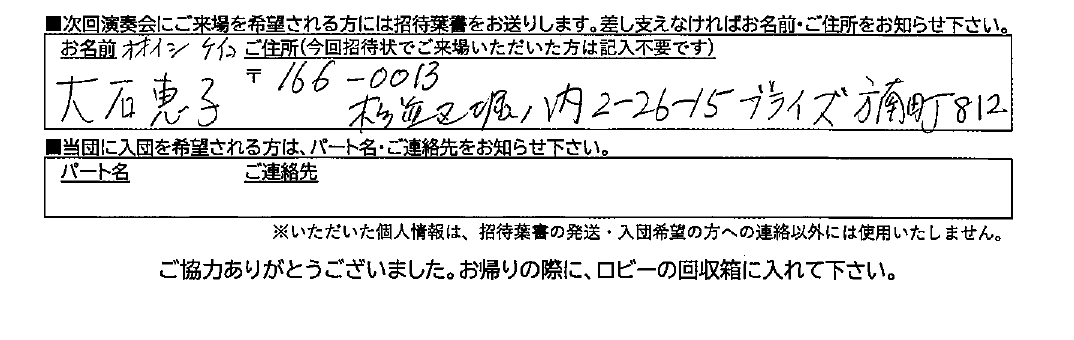 ■次回演奏会にご来場を希望される方には招待葉書をお送りします。差し支えなければお名前・ご住所をお知らせ下さい。
お名前 オオイシ ケイコ ご住所(今回招待状でご来場いただいた方は記入不要です)
大石恵子 〒166-0013
杉並区堀ノ内2-26-15 ブライズ方南町812
■当団に入団を希望される方は、パート名・ご連絡先をお知らせ下さい。
パート名 ご連絡先
※いただいた個人情報は、招待葉書の発送・入団希望の方への連絡以外には使用いたしません。
ご協力ありがとうございました。お帰りの際に、ロビーの回収箱に入れて下さい。